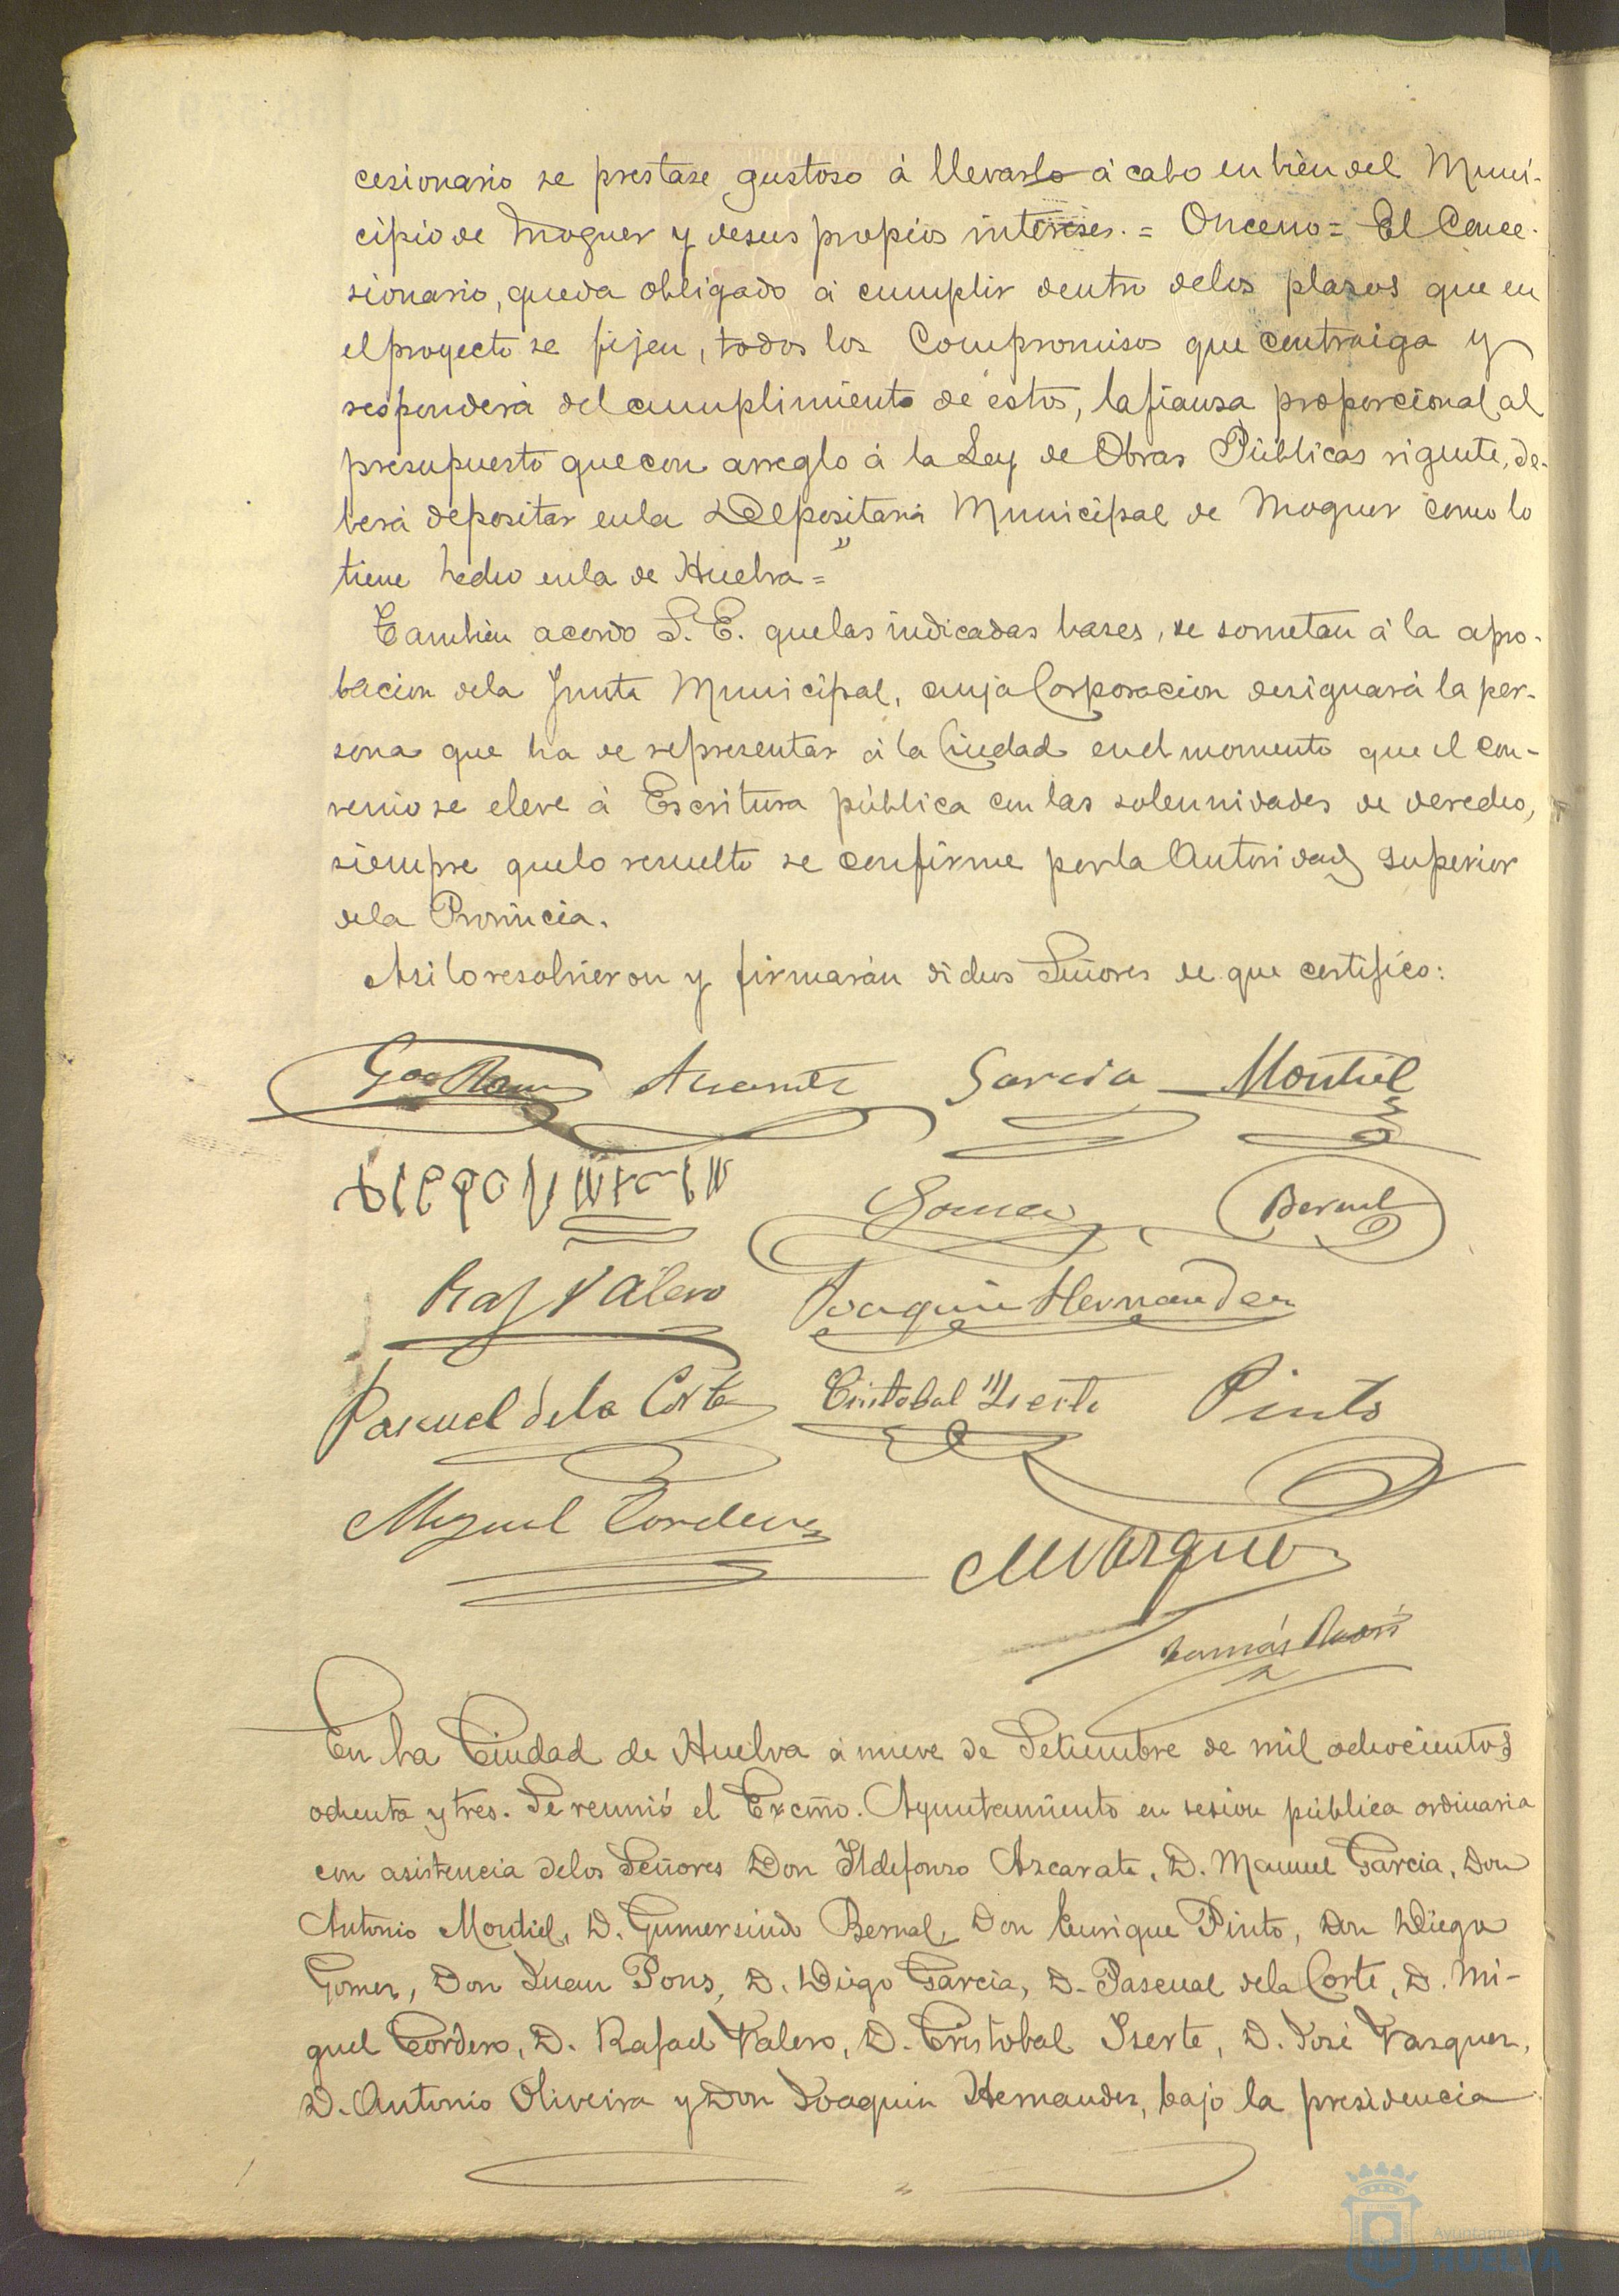 cesionario se prestase gustoso á llevarlo á cabo en bien del Muni-
cipio de Moguer y de sus propios intereses. = Onceno = El Conce-
sionario, queda obligado á cumplir dentro de los plazos que en
el proyecto se fijen, todos los Compromisos que contraiga y
responderá del cumplimiento de estos, la fianza proporcional al
presupuesto que con arreglo á la Ley de Obras Públicas vigente, de-
berá depositar en la Depositaria Municipal de Moguer como lo
tiene hecho en la de Huelva="
Tambien acordo S. E. que las indicadas bases, se sometan á la apro-
bacion de la Junta Municipal, cuya Corporacion designará la per-
sona que ha de representar á la Ciudad en el momento que el con-
venio se eleve á Escritura pública con las solemnidades de derecho,
siempre que lo resuelto se confirme por la Autoridad Superior
de la Provincia.
Asi lo resolvieron y firmarán dichos Señores de que certifico:
Garcia Montiel
Gomez Bernal
Raf Valero Joaquin Hernandez
Pascual de la Corte Cristobal Yserte Pinto
Miguel Cordero
M Vazquez
Tomás
En la Ciudad de Huelva á nueve de Setiembre de mil ochocientos
ochenta y tres. Se reunió el Excmo. Ayuntamiento en sesion pública ordinaria
con asistencia de los Señores Don Ildefonso Azcarate, D. Manuel Garcia, Don
Antonio Montiel, D. Gumersindo Bernal, Don Enrique Pinto, Don Diego
Gomez, Don Juan Pons, D. Diego Garcia, D. Pascual de la Corte, D. Mi-
guel Cordero, D. Rafael Valero, D. Cristobal Yserte, D. José Vazquez,
D. Antonio Oliveira y Don Joaquin Hernandez, bajo la presidencia
Ayuntamiento
HUELVA